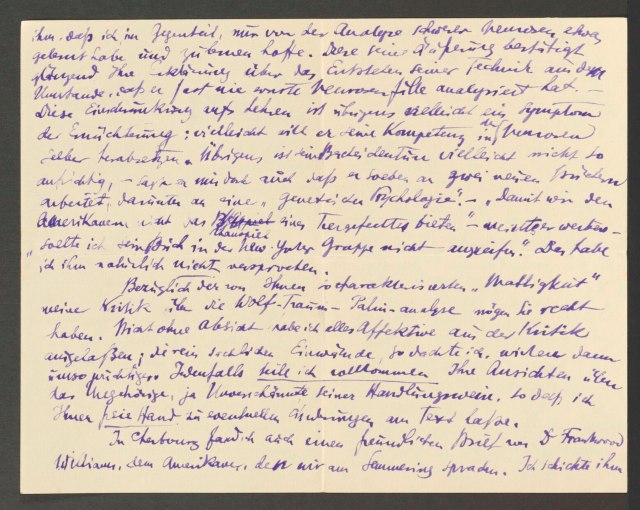 ihm, daß ich im Gegenteil, nur von der Analyse schwerer Neurosen etwas
gelernt habe und zu lernen hoffe. Diese seine Äußerung bestätigt
glänzend Ihre Erklärung über das Entstehen seiner Technik aus dem
Umstande, daß er fast nie ernste Neurosenfälle analysiert hat. –
Diese Einschränkung aufs Lehren ist übrigens vielleicht ein Symptom
der Ernüchterung; vielleicht will er seine Kompetenz in den Neurosen
selber herabsetzen. Übrigens ist sein vielleicht nicht so
aufrichtig, – sagte er mir doch auch daß er soeben an zwei neuen Büchern
arbeitet, darunter an eine „genetischen Psychologie". – „Damit wir den
Amerikanern nicht das Schauspiel eines Tiergefechtes bieten" – meinte er weiter –
„sollte ich sein Buch in der New-Yorker Gruppe nicht angreifen". Das habe
ich ihm natürlich nicht versprochen.
Bezüglich der von Ihnen so charakterisierten „Mattigkeit"
meine Kritik über die Wolf-Traum-Palm-analyse mögen Sie recht
haben. Nicht ohne Absicht habe ich alles Affektive aus der Kritik
ausgelaßen; die rein sachlichen Einwände, so dachte ich, wirken dann
umso wichtiger. Jedenfalls teile ich vollkommen Ihre Ansichten über
das Ungehörige, ja Unverschämte seiner Handlungsweise, so daß ich
Ihnen freie Hand zu eventuellen Änderungen am Text laße.
In Cherbourg fand ich auch einen freundlichen Brief von Dr Frankwood
Williams, dem Amerikaner, den wir am Semmering sprachen. Ich schickte ihm